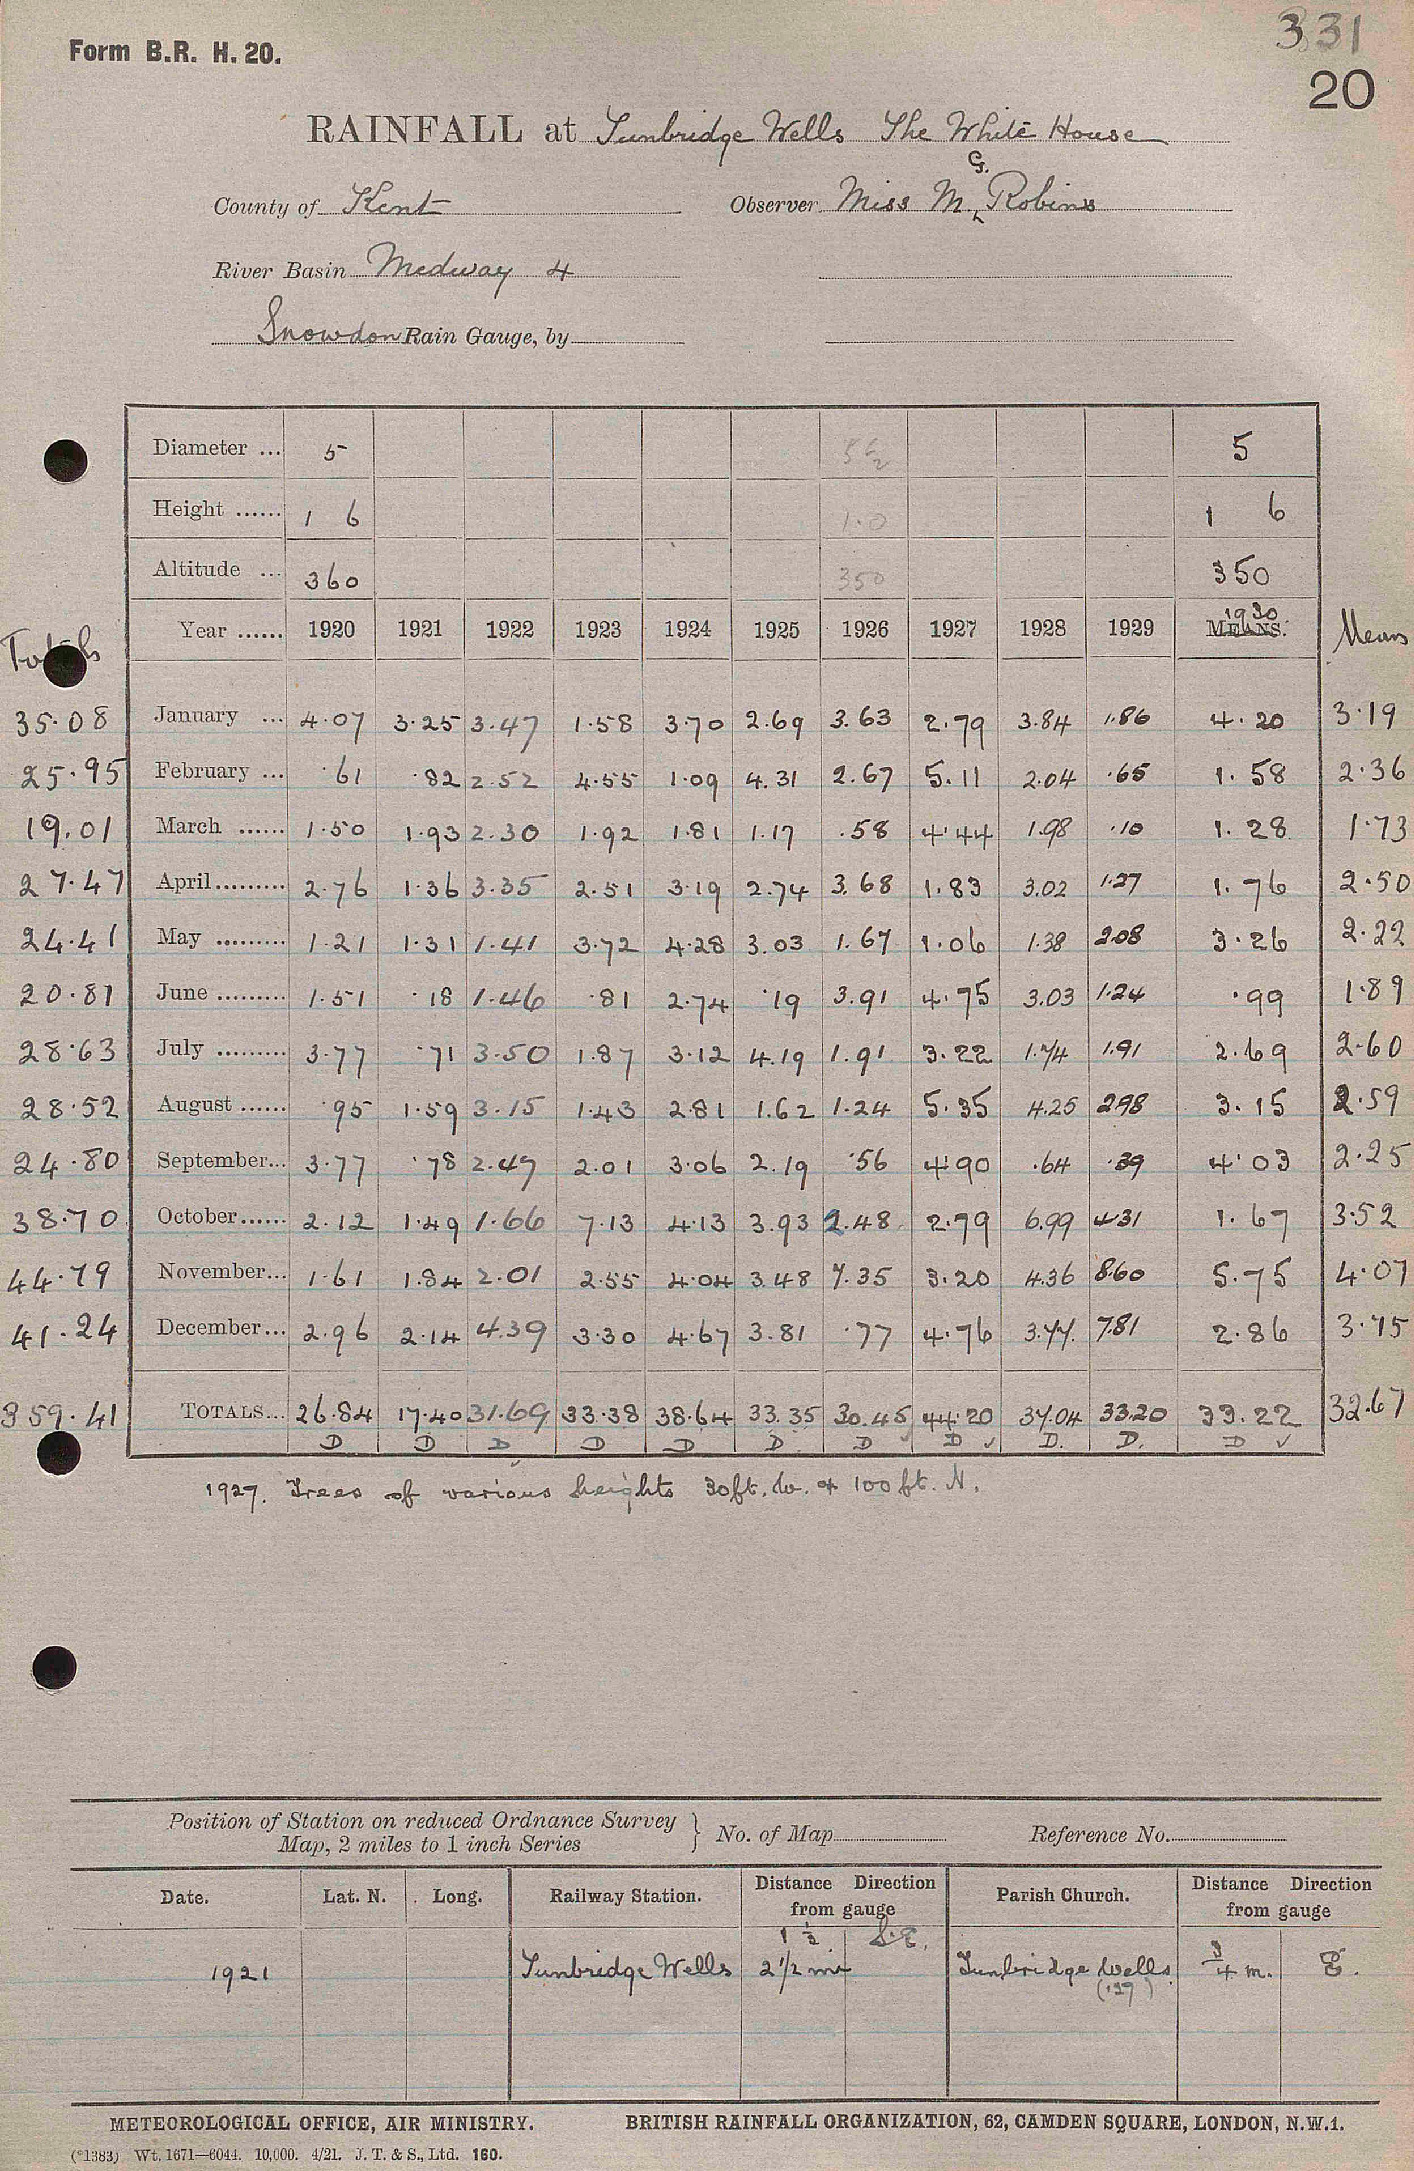 331
Form B.R. H. 20.
20
RAINFALL at Tunbridge Wells The White House
County of Kent Observer Miss M G. Robins
River Basin Medway 4
Snowdon Rain Gauge, by
Diameter ... 5 5 1/2 5
Height ...... 1 6 1.0 1 6
Altitude ... 360 350 350
Totals Year ...... 1920 1921 1922 1923 1924 1925 1926 1927 1928 1929 MEANS. 1930 Means
35.08 January ... 4.07 3.25 3.47 1.58 3.70 2.69 3.63 2.79 3.84 1.86 4.20 3.19
25.95 February ... .61 .82 2.52 4.55 1.09 4.31 2.67 5.11 2.04 .65 1.58 2.36
19.01 March ...... 1.50 1.93 2.30 1.92 1.81 1.17 .58 4.44 1.98 .10 1.28 1.73
27.47 April ......... 2.76 1.36 3.35 2.51 3.19 2.74 3.68 1.83 3.02 1.27 1.76 2.50
24.41 May ......... 1.21 1.31 1.41 3.72 4.28 3.03 1.67 1.06 1.38 2.08 3.26 2.22
20.81 June ......... 1.51 .18 1.46 .81 2.74 .19 3.91 4.75 3.03 1.24 .99 1.89
28.63 July ......... 3.77 .71 3.50 1.87 3.12 4.19 1.91 3.22 1.74 1.91 2.69 2.60
28.52 August ...... .95 1.59 3.15 1.43 2.81 1.62 1.24 5.35 4.25 2.98 3.15 2.59
24.80 September... 3.77 .78 2.47 2.01 3.06 2.19 .56 4.90 .64 .39 4.03 2.25
38.70 October...... 2.12 1.49 1.66 7.13 4.13 3.93 2.48 2.79 6.99 4.31 1.67 3.52
44.79 November... 1.61 1.84 2.01 2.55 4.04 3.48 7.35 3.20 4.36 8.60 5.75 4.07
41.24 December... 2.96 2.14 4.39 3.30 4.67 3.81 .77 4.76 3.77 7.81 2.86 3.75
359.41 TOTALS... 26.84 17.40 31.69 33.38 38.64 33.35 30.45 44.20 37.04 33.20 33.22 32.67
D D D D D D D D ✓ D. D. D ✓
1927. Trees of various heights 30ft. W. & 100 ft. N.
Position of Station on reduced Ordnance Survey
Map, 2 miles to 1 inch Series } No. of Map Reference No.
Date. Lat. N. Long. Railway Station. Distance Direction from gauge Parish Church. Distance Direction from gauge
1 1/2 S.E.
1921 Tunbridge Wells 2 1/2 m Tunbridge Wells 3/4 m. E.
METEOROLOGICAL OFFICE, AIR MINISTRY. BRITISH RAINFALL ORGANIZATION, 62, CAMDEN SQUARE, LONDON, N.W.1.
(*1383) Wt. 1671—6044. 10,000. 4/21. J. T. & S., Ltd. 160.